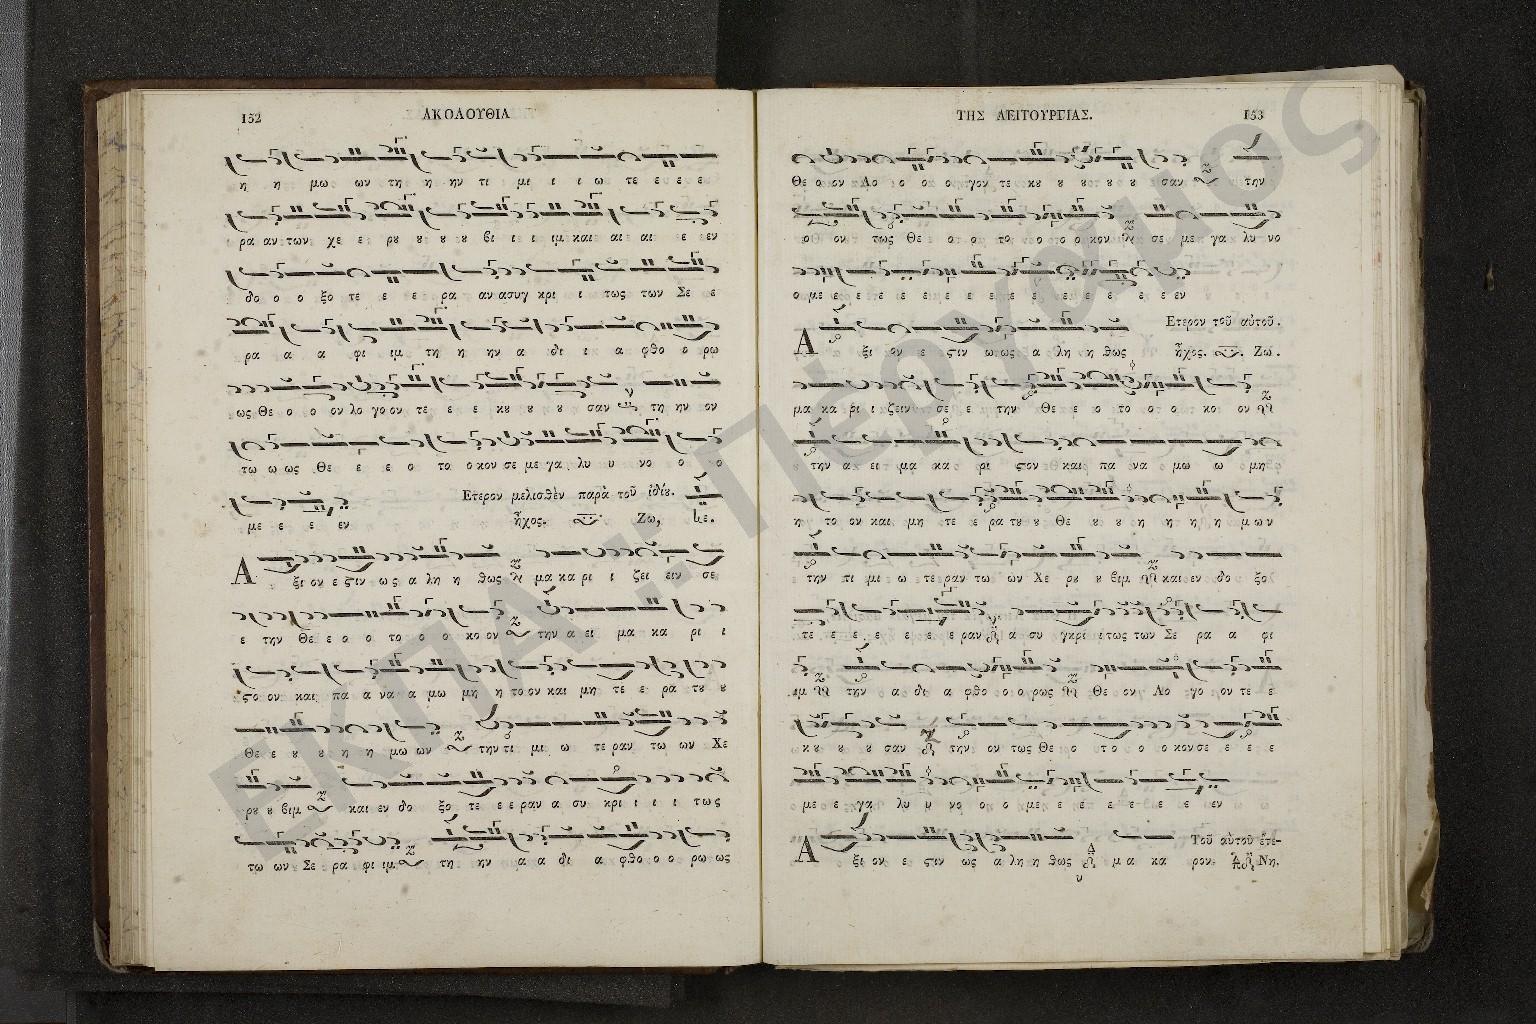 152
ΑΚΟΛΟΥΘΙΑ
η η μω ων τη η ην τι μι ι ι ω τε ε ε ε
ρα αν των χε ε ρȣ ȣ ȣ ȣ βι ι ι ιμ και αι αι ε εν
δο ο ο ξο τε ε ε ρα αν ασυγ κρι ι τως των Σε ε
ρα α α φι ιμ τη η ην α δι ι α φθο ο ρω
ως Θε ο ο ον λο γο ον τε ε ε κȣ ȣ ȣ ȣ σαν τη ην ον
τω ω ως Θε ε ε ο το ο κον σε με γα λυ υ νο ο ο
με ε ε εν Ετερον μελισθὲν παρὰ τοῦ ἰδίȣ.
ἦχος. Ζω, κε.
Α ξι ον ε ϛιν ως α λη η θως μα κα ρι ι ζει ειν σε
ε την Θε ε ο ο το ο ο κο ον την α ει μα κα ρι ι
ϛο ον και πα α να α μω μη η το ον και μη τε ε ρα τȣ ȣ
Θε ε ȣ ȣ η η μω ων την τι μι ω τε ραν τω ων Χε
ρȣ ȣ βιμ και εν δο ξο τε ε ε ραν α συ κρι ι ι ι τως
τω ων Σε ρα φι ιμ τη ην α α δι α φθο ο ο ρω ως
ΤΗΣ ΛΕΙΤΟΥΡΓΙΑΣ.
153
Θε ο ον Λο ο ο ο γον τε κȣ ȣ ȣ ȣ ȣ σαν την
ο ον τως Θε ο ο το ο ο ο κον σε με γα λυ νο
ο με ε ε ε ε ε ε ε ε ε ε ε ε ε εν
Ετερον τοῦ αὐτοῦ.
Α ξι ον ε ϛιν ω ως α λη η θως ἦχος. Ζω.
μα κα ρι ι ζειν σε ε την Θε ε ο το ο ο κο ον
την α ει μα κα ρι ϛον και πα να μω ω μη
η το ον και μη τε ε ρα τȣ ȣ Θε ȣ ȣ η η η η μων
την τι μι ω τε ραν τω ων Χε ρȣ ȣ βιμ και εν δο ξο
τε ε ε ε ε ε ε ραν α συ γκρι ι τως των Σε ρα α φι
ιμ την α δι α φθο ο ο ρως Θε ον Λο γο ον τε ε
κȣ ȣ ȣ σαν την ον τως Θε ο το ο ο κον σε ε ε ε
με ε γα λυ υ νο ο ο με ε ε ε ε ε ε ε εν
Τοῦ αὐτοῦ ἑτε-
Α ξι ον ε ϛιν ως α λη η θως μα κα ρον Νη.
ΕΚΠΑ :: Πέργαμος